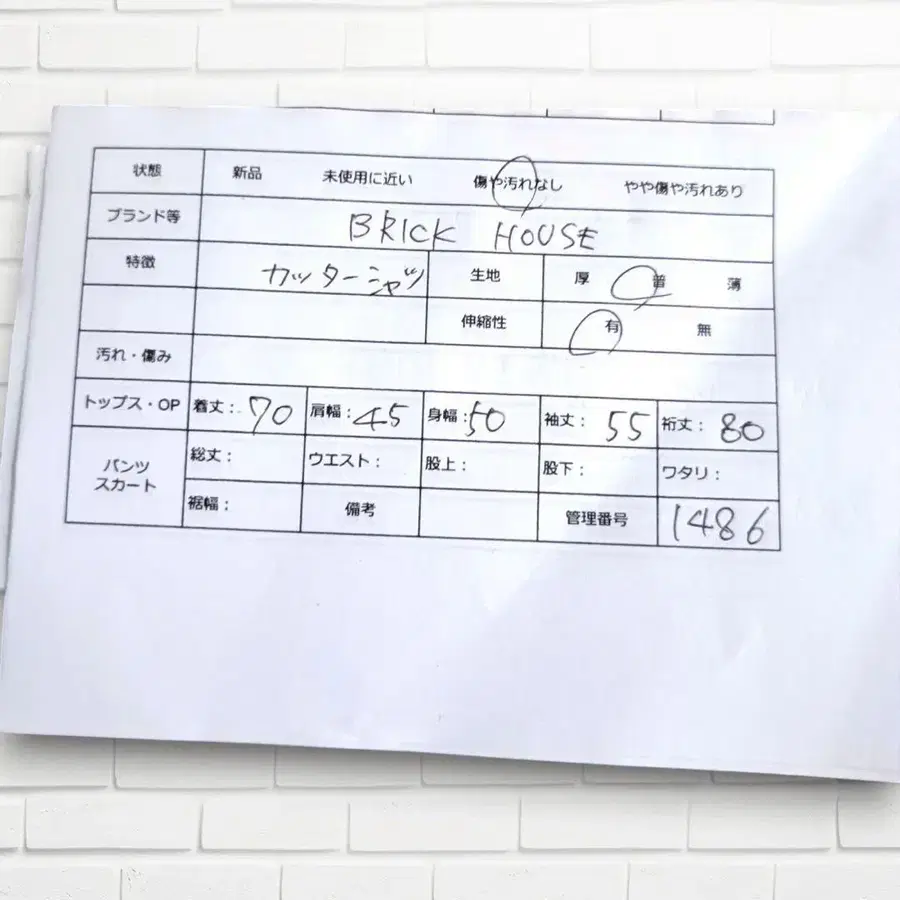 状態 新品 未使用に近い 傷や汚れなし やや傷や汚れあり
ブランド等 BRICK HOUSE
特徴 カッターシャツ 生地 厚 普 薄
伸縮性 有 無
汚れ・傷み
トップス・OP 着丈: 70 肩幅: 45 身幅: 50 袖丈: 55 裄丈: 80
パンツ スカート 総丈: ウエスト: 股上: 股下: ワタリ:
裾幅: 備考 管理番号 1486